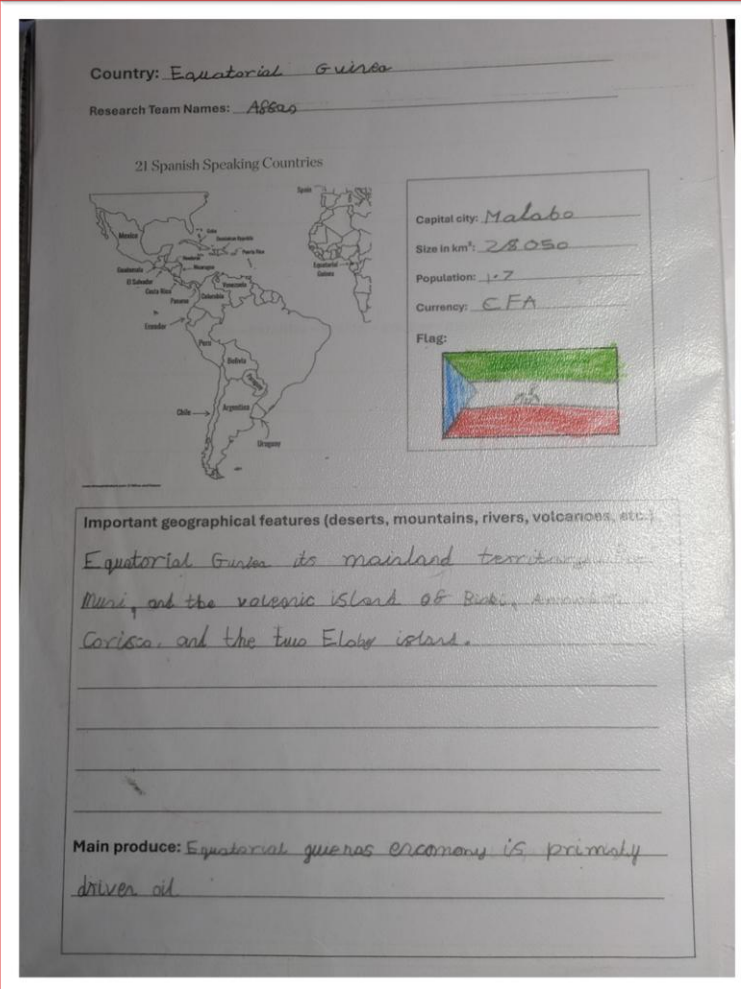 Country: Equatorial Guinea
Research Team Names:
21 Spanish Speaking Countries
Spain
Mexico
Cuba
Dominican Republic
Puerto Rico
Honduras
Guatemala
Nicaragua
El Salvador
Costa Rica
Panama
Venezuela
Colombia
Equatorial
Guinea
Ecuador
Peru
Bolivia
Paraguay
Chile
Argentina
Uruguay
Capital city: Malabo
Size in km²: 28050
Population: 1.7
Currency: CFA
Flag:
Important geographical features (deserts, mountains, rivers, volcanoes, etc.)
Equatorial Guinea its mainland
Muni, and the volcanic island of
Corisco, and the two Eloby island.
Main produce: Equatorial guienas encomony is primaly
driven oil